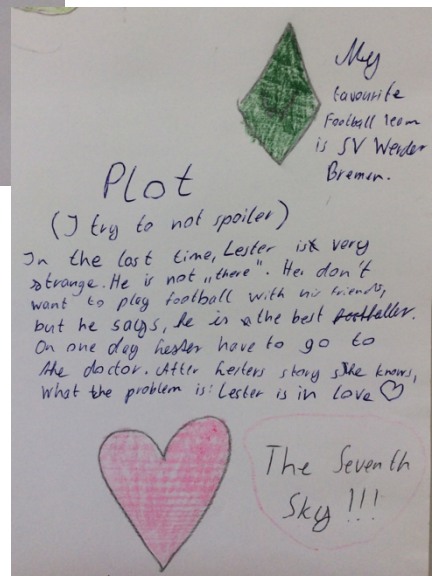 My
favourite
Football team
is SV Werder
Bremen.
Plot
(I try to not spoiler)
In the last time, Lester is very
strange. He is not „there". He don't
want to play football with his friends,
but he says, he is the best footballer.
On one day Lester have to go to
the doctor. After Lesters story she knows,
what the problem is: Lester is in love ♡
The Seventh
Sky!!!